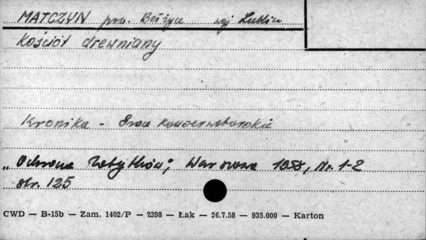 MATCZYN pow. Bełżyce woj Lublin
kościół drewniany
Kronika - Prace konserwatorskie
"Ochrona Zabytków", Warszawa 1958, Nr. 1-2
str. 125
CWD — B-15b — Zam. 1402/P — 2398 — Łak — 26.7.58 — 935.000 — Karton